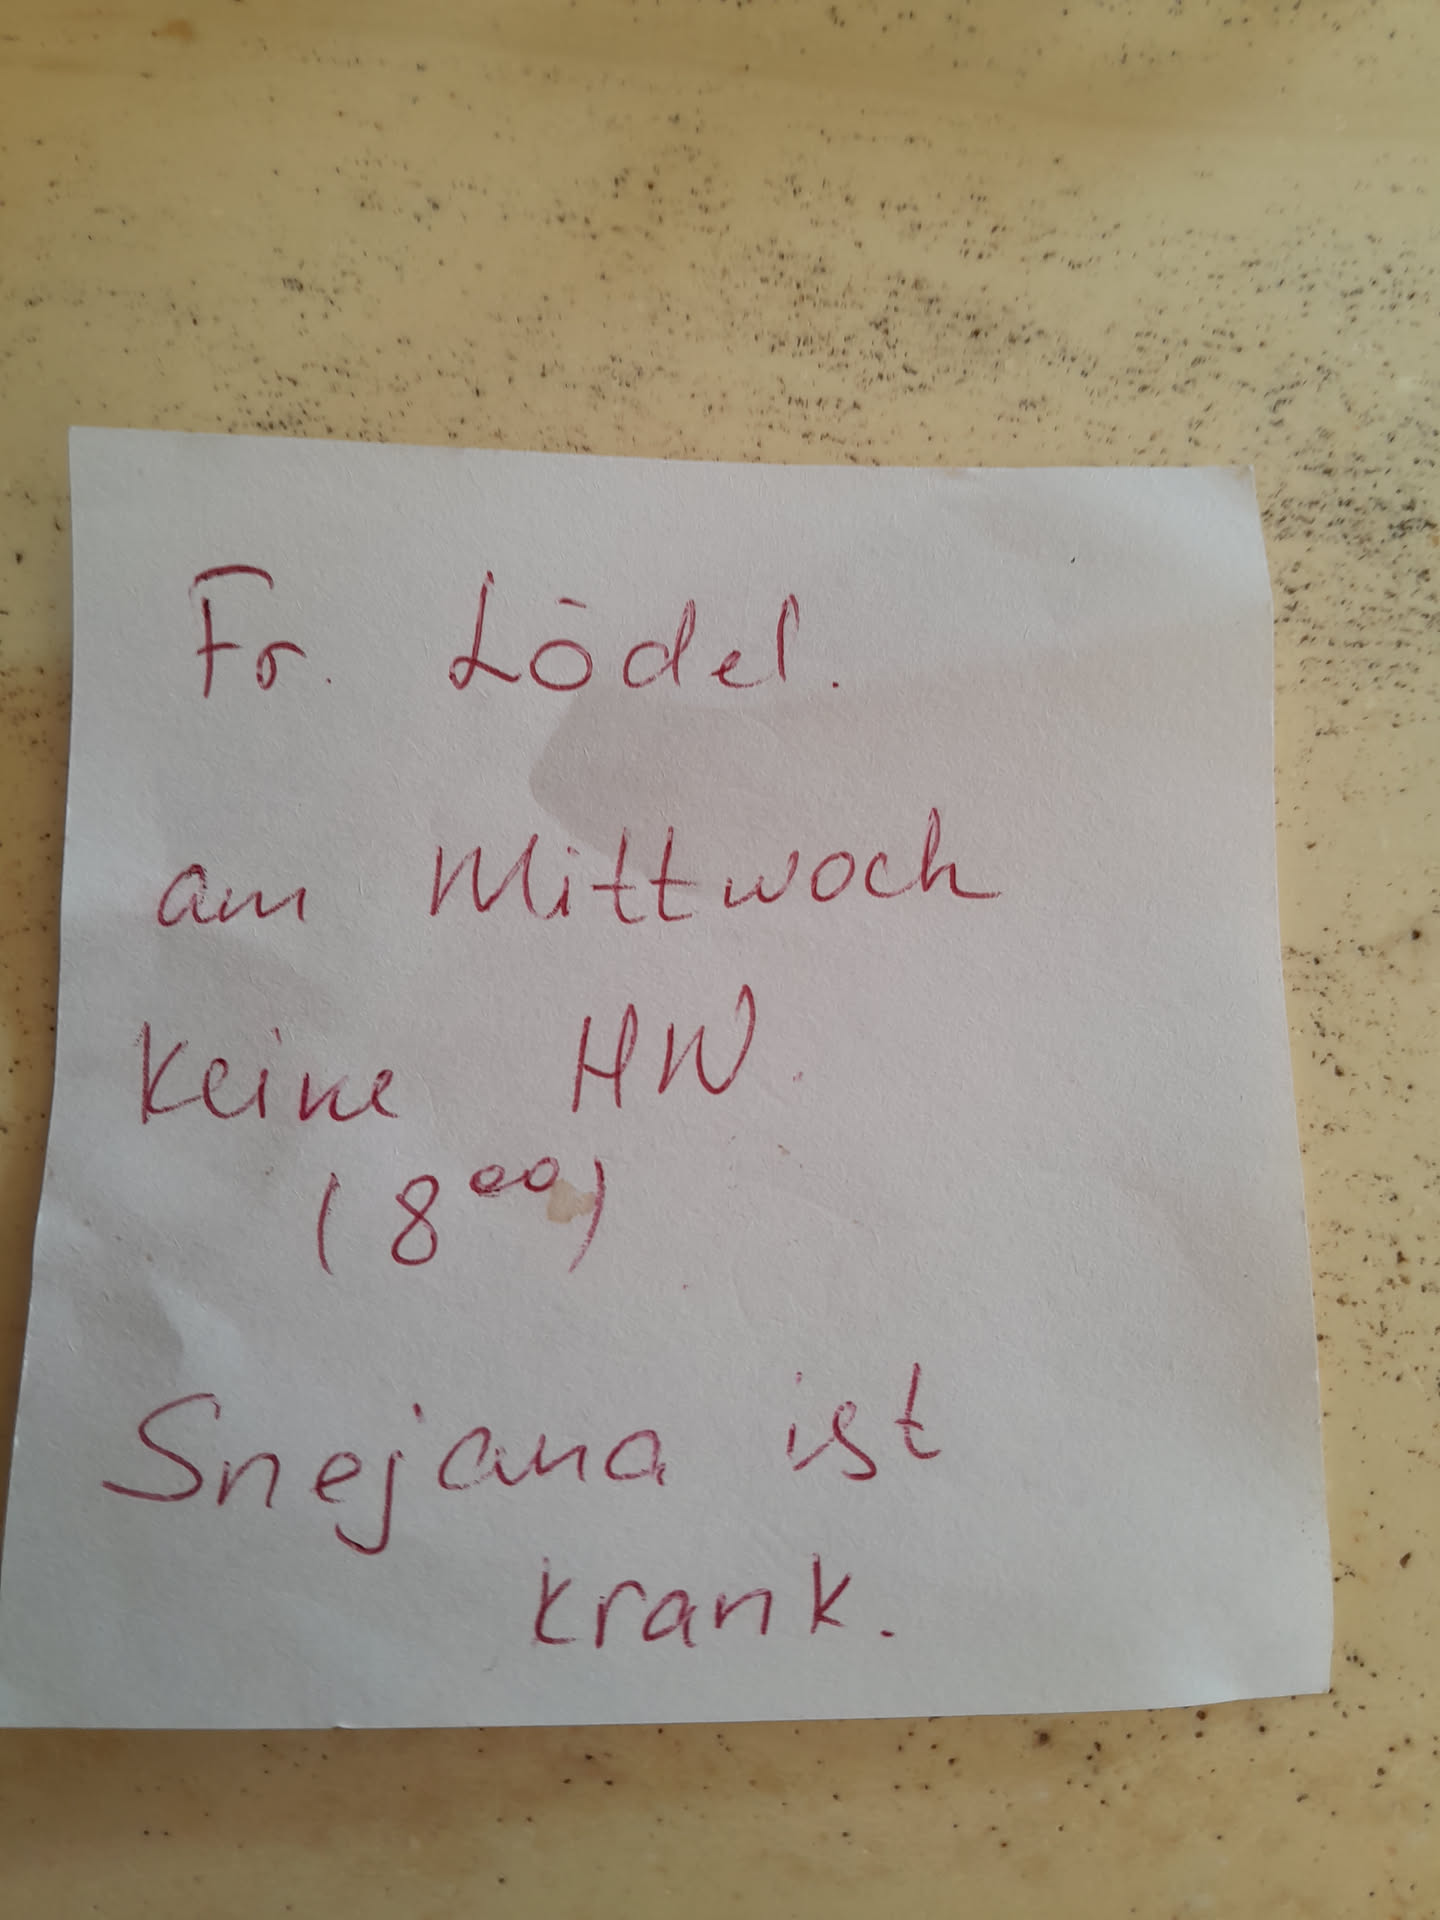 Fr. Lödel.
am Mittwoch
Keine HW.
(8⁰⁰)
Snejana ist
krank.